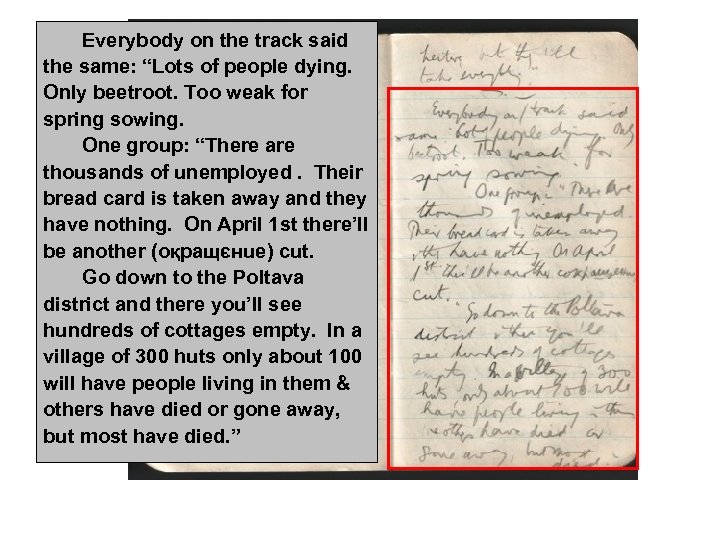 Everybody on the track said
the same: “Lots of people dying.
Only beetroot. Too weak for
spring sowing.
One group: “There are
thousands of unemployed . Their
bread card is taken away and they
have nothing. On April 1st there’ll
be another (оқращєние) cut.
Go down to the Poltava
district and there you’ll see
hundreds of cottages empty. In a
village of 300 huts only about 100
will have people living in them &
others have died or gone away,
but most have died. ”
but they'll
take everything"
Everybody on track said
same. Lots people dying. Only
beetroot. Too weak for
spring sowing.
One group: "There are
thousands of unemployed.
Their bread card is taken away
they have nothing. On April
1st there'll be another
cut.
Go down to the Poltava
district & there you'll
see hundreds of cottages
empty. In a village of 300
huts, only about 100 will
have people living in them
& others have died or
gone away, but most
died.